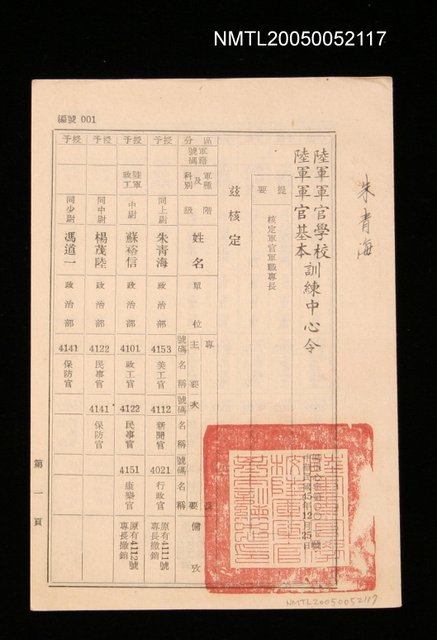 NMTL20050052117
編號 001
朱青海
陸軍軍官學校
陸軍軍官基本訓練中心令
提要
核定軍官軍職專長
茲核定
區分
軍籍號碼
軍種及科別
階級
姓名
單位
專
主
號碼
名稱
要
次
號碼
名稱
號碼
名稱
要
備攷
授予
陸軍政工
同上尉
朱青海
政治部
4153
美工官
4112
新聞官
4021
行政官
原有4111號專長撤銷
授予
中尉
蘇裕信
政治部
4101
政工官
4122
民事官
4151
康樂官
原有4112號專長撤銷
授予
同中尉
楊茂陸
政治部
4122
民事官
4141
保防官
授予
同少尉
馮道一
政治部
4141
保防官
中華民國45年12月25日
第一頁
NMTL20050052117